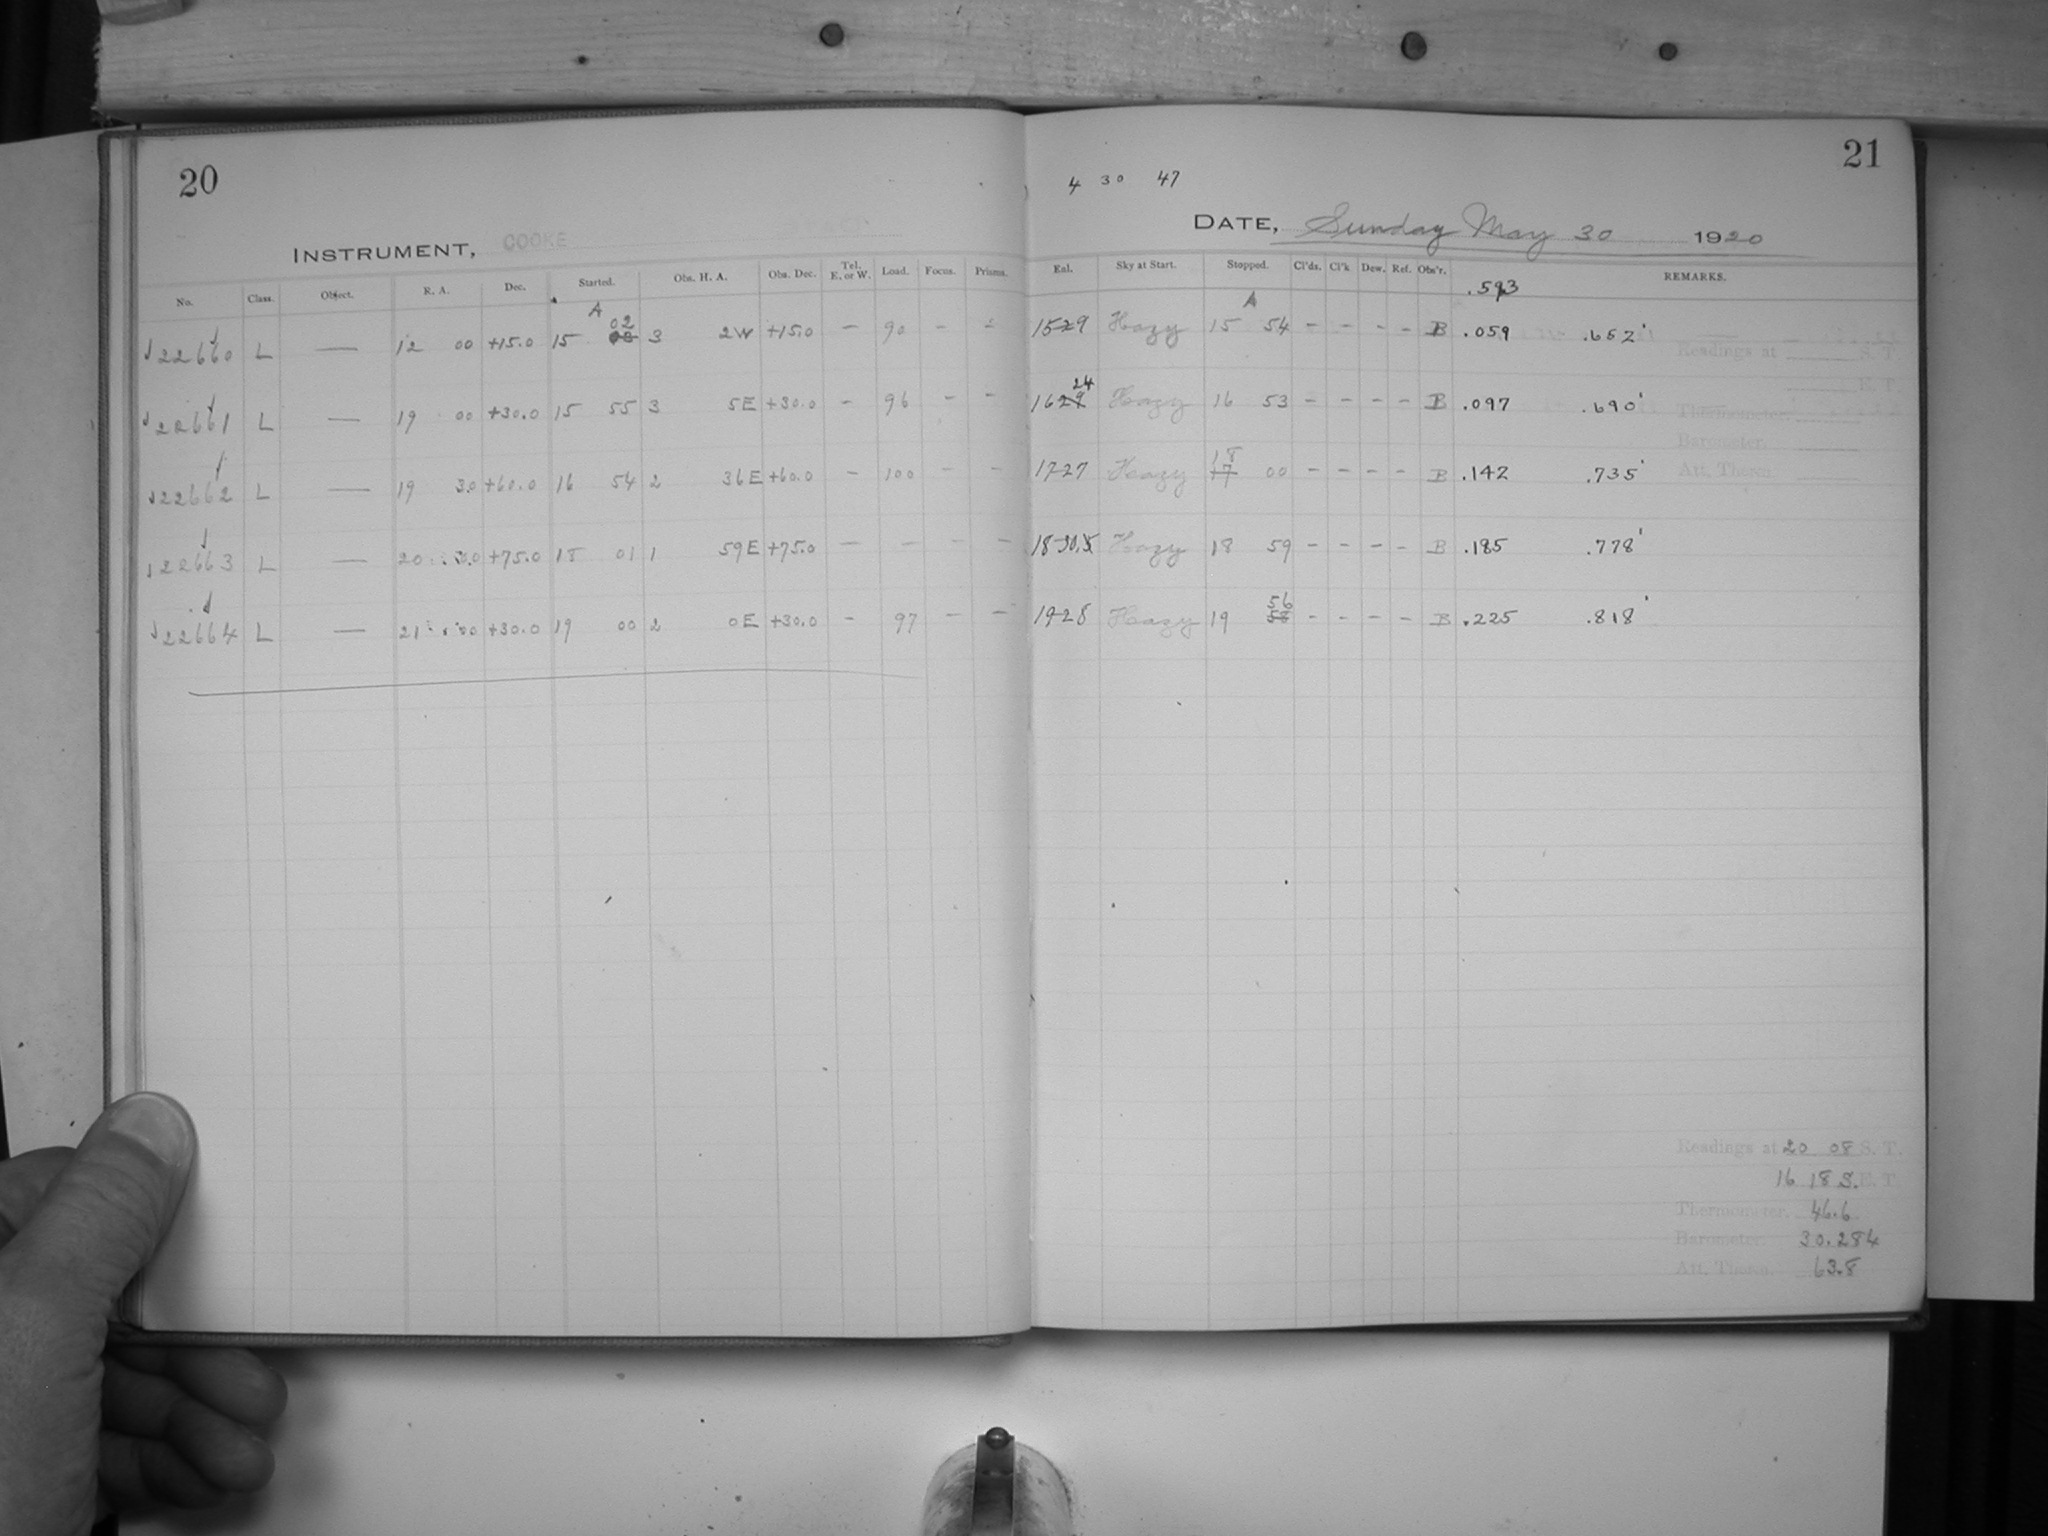 20
INSTRUMENT, COOKE
No. Class. Object. R. A. Dec. Started. Obs. H. A. Obs. Dec. Tel. E. or W. Load. Focus. Prisms.
A
02
22660 L — 12 00 +15.0 15 3 2W +15.0 — 90 — —
22661 L — 19 00 +30.0 15 55 3 5E +30.0 — 96 — —
22662 L — 19 30 +60.0 16 54 2 36E +60.0 — 100 — —
22663 L — 20 30 +75.0 18 01 1 59E +75.0 — — — —
22664 L — 21 00 +30.0 19 00 2 0E +30.0 — 97 — —
21
4 30 47
DATE, Sunday May 30 1920
Exl. Sky at Start. Stopped. Cl'ds. Cl'k Dew. Ref. Obs'r. REMARKS.
.593
A
1529 Hazy 15 54 — — — — B .059 .652'
24
1629 Hazy 16 53 — — — — B .097 .690'
18
1727 Hazy 17 00 — — — — B .142 .735'
18 30.5 Hazy 18 59 — — — — B .185 .778'
56
1928 Hazy 19 58 — — — — B .225 .818'
Readings at S. T.
E. T.
Thermometer.
Barometer.
Att. Therm.
Readings at 20 08 S. T.
16 18 S. E. T.
Thermometer. 46.6
Barometer. 30.284
Att. Therm. 63.8